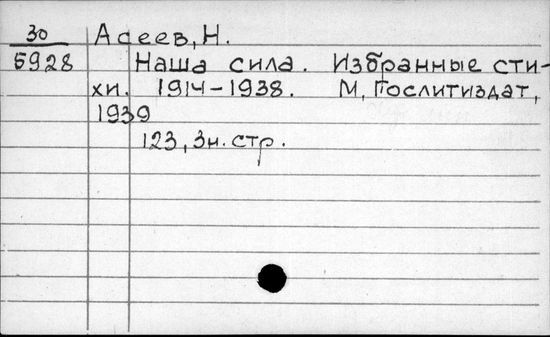 30 Асеев, Н.
5928 Наша сила. Избранные сти-
хи. 1914-1938. М, Гослитиздат,
1939
123, 3н. стр.